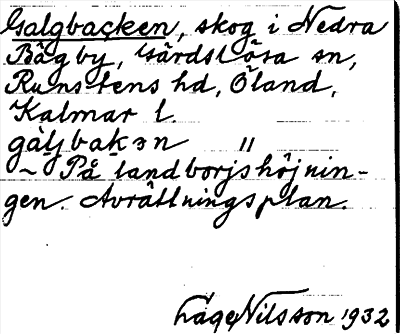 Galgbacken, skog i Nedra
Bägby, Gärdslösa sn,
Runstens hd, Öland,
Kalmar l.
gàljbakən 〃
~ På landborjshöjnin-
gen. Avrättningsplan.
Låge Nilsson 1932